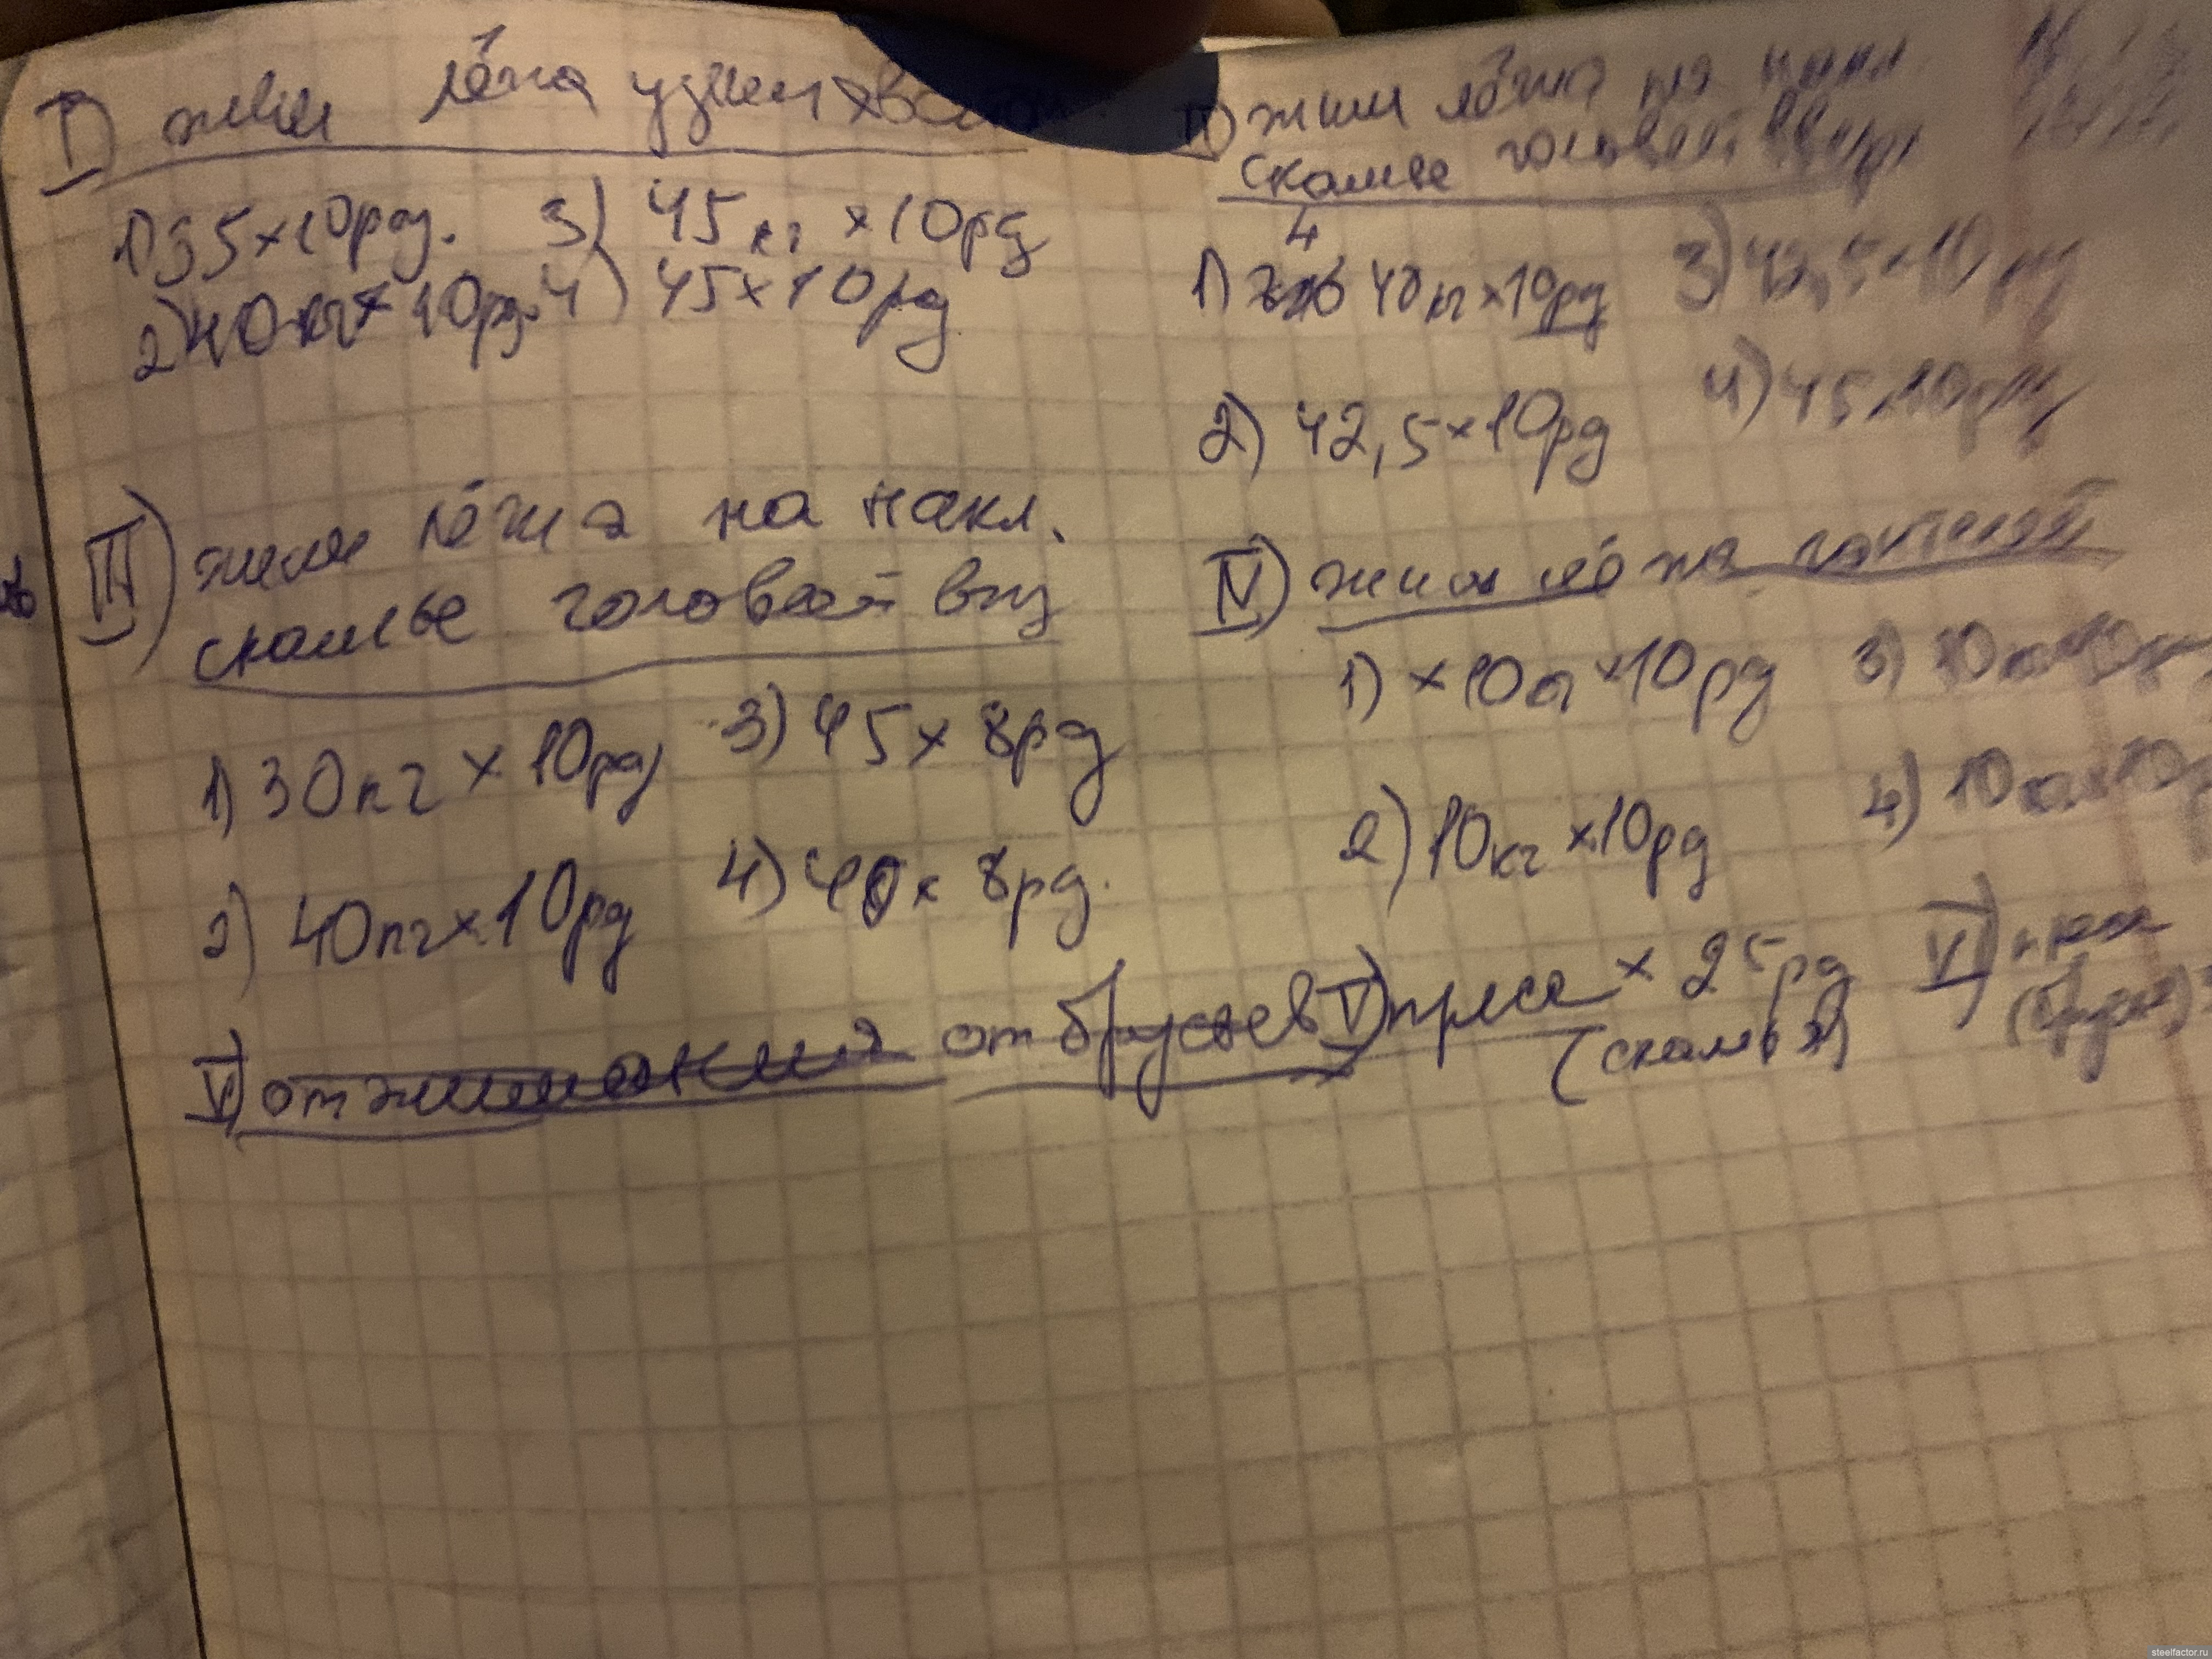 I) жим лёжа узким хватом
1) 35×10рд. 3) 45кг ×10рд
2) 40кг×10рд. 4) 45×10рд
II) жим лёжа на накл.
скамье головой вверх
4
1) 40кг×10рд 3) 42,5×10рд
2) 42,5×10рд 4) 45×10рд
III) жим лёжа на накл.
скамье головой вниз
1) 30кг×10рд 3) 45×8рд
2) 40кг×10рд 4) 40×8рд.
IV) жим лёжа
1) ×10кг×10рд 3) 10кг×10рд
2) 10кг×10рд 4) 10кг×10р
V) отжимания от брусьев V) пресс × 25рд VI)
(скамья)
steelfactor.ru